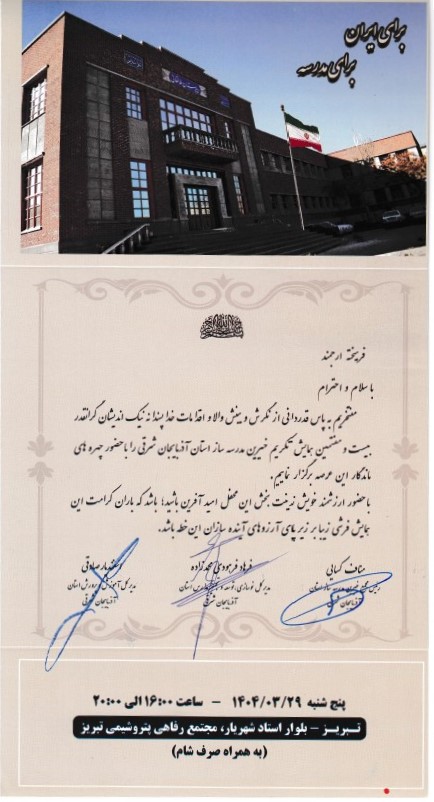 برای ایران
برای مدرسه
فرهیخته ارجمند
با سلام و احترام
مفتخریم به پاس قدردانی از نگرش و بینش والا و اقدامات خداپسندانه نیک اندیشان گرانقدر
بیست و هفتمین همایش تکریم خیرین مدرسه ساز استان آذربایجان شرقی را با حضور چهره های
ماندگار این عرصه برگزار نماییم.
با حضور ارزشمند خویش زینت بخش این محفل امید آفرین باشید؛ باشد که باران کرامت این
همایش فرشی زیبا بر زیر پای آرزوهای آینده سازان این خطه باشد.
مناف کبیائی
رئیس مجمع خیرین مدرسه ساز استان
آذربایجان شرقی
فرهاد فرهودی مجدزاده
مدیر کل نوسازی، توسعه و تجهیز مدارس استان
آذربایجان شرقی
صادقی
مدیر کل آموزش و پرورش استان
آذربایجان شرقی
پنج شنبه ۱۴۰۴/۰۳/۲۹ - ساعت ۱۶:۰۰ الی ۲۰:۰۰
تبریز - بلوار استاد شهریار، مجتمع رفاهی پتروشیمی تبریز
(به همراه صرف شام)